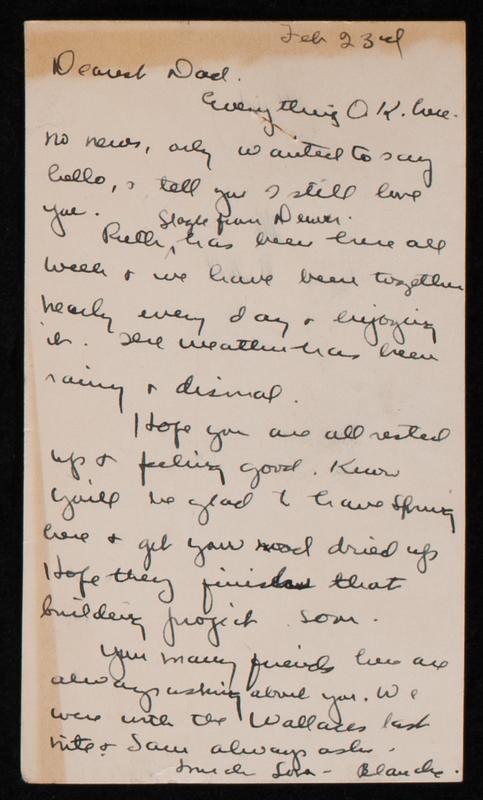 Feb 23rd
Dearest Dad.
Everything O.K. here.
no news, only wanted to say
hello, & tell you I still love
you.
Slagle from Denver.
Ruth, has been here all
week & we have been together
nearly every day & enjoying
it. The weather has been
rainy & dismal.
Hope you are all rested
up & feeling good. Know
you'll be glad to have Spring
here & get your road dried up
Hope they finish that
building project soon.
Your many friends here are
always asking about you. We
were with the Wallaces last
nite & Sam always asks.
Much Love - Blanche.